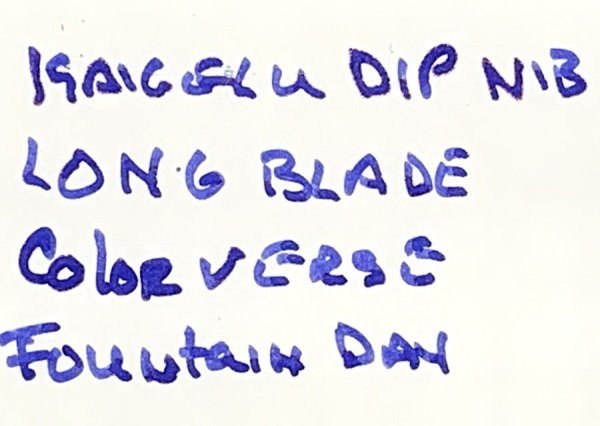 KAIGELU DIP NIB
LONG BLADE
ColoRVERSE
Fountain DAY